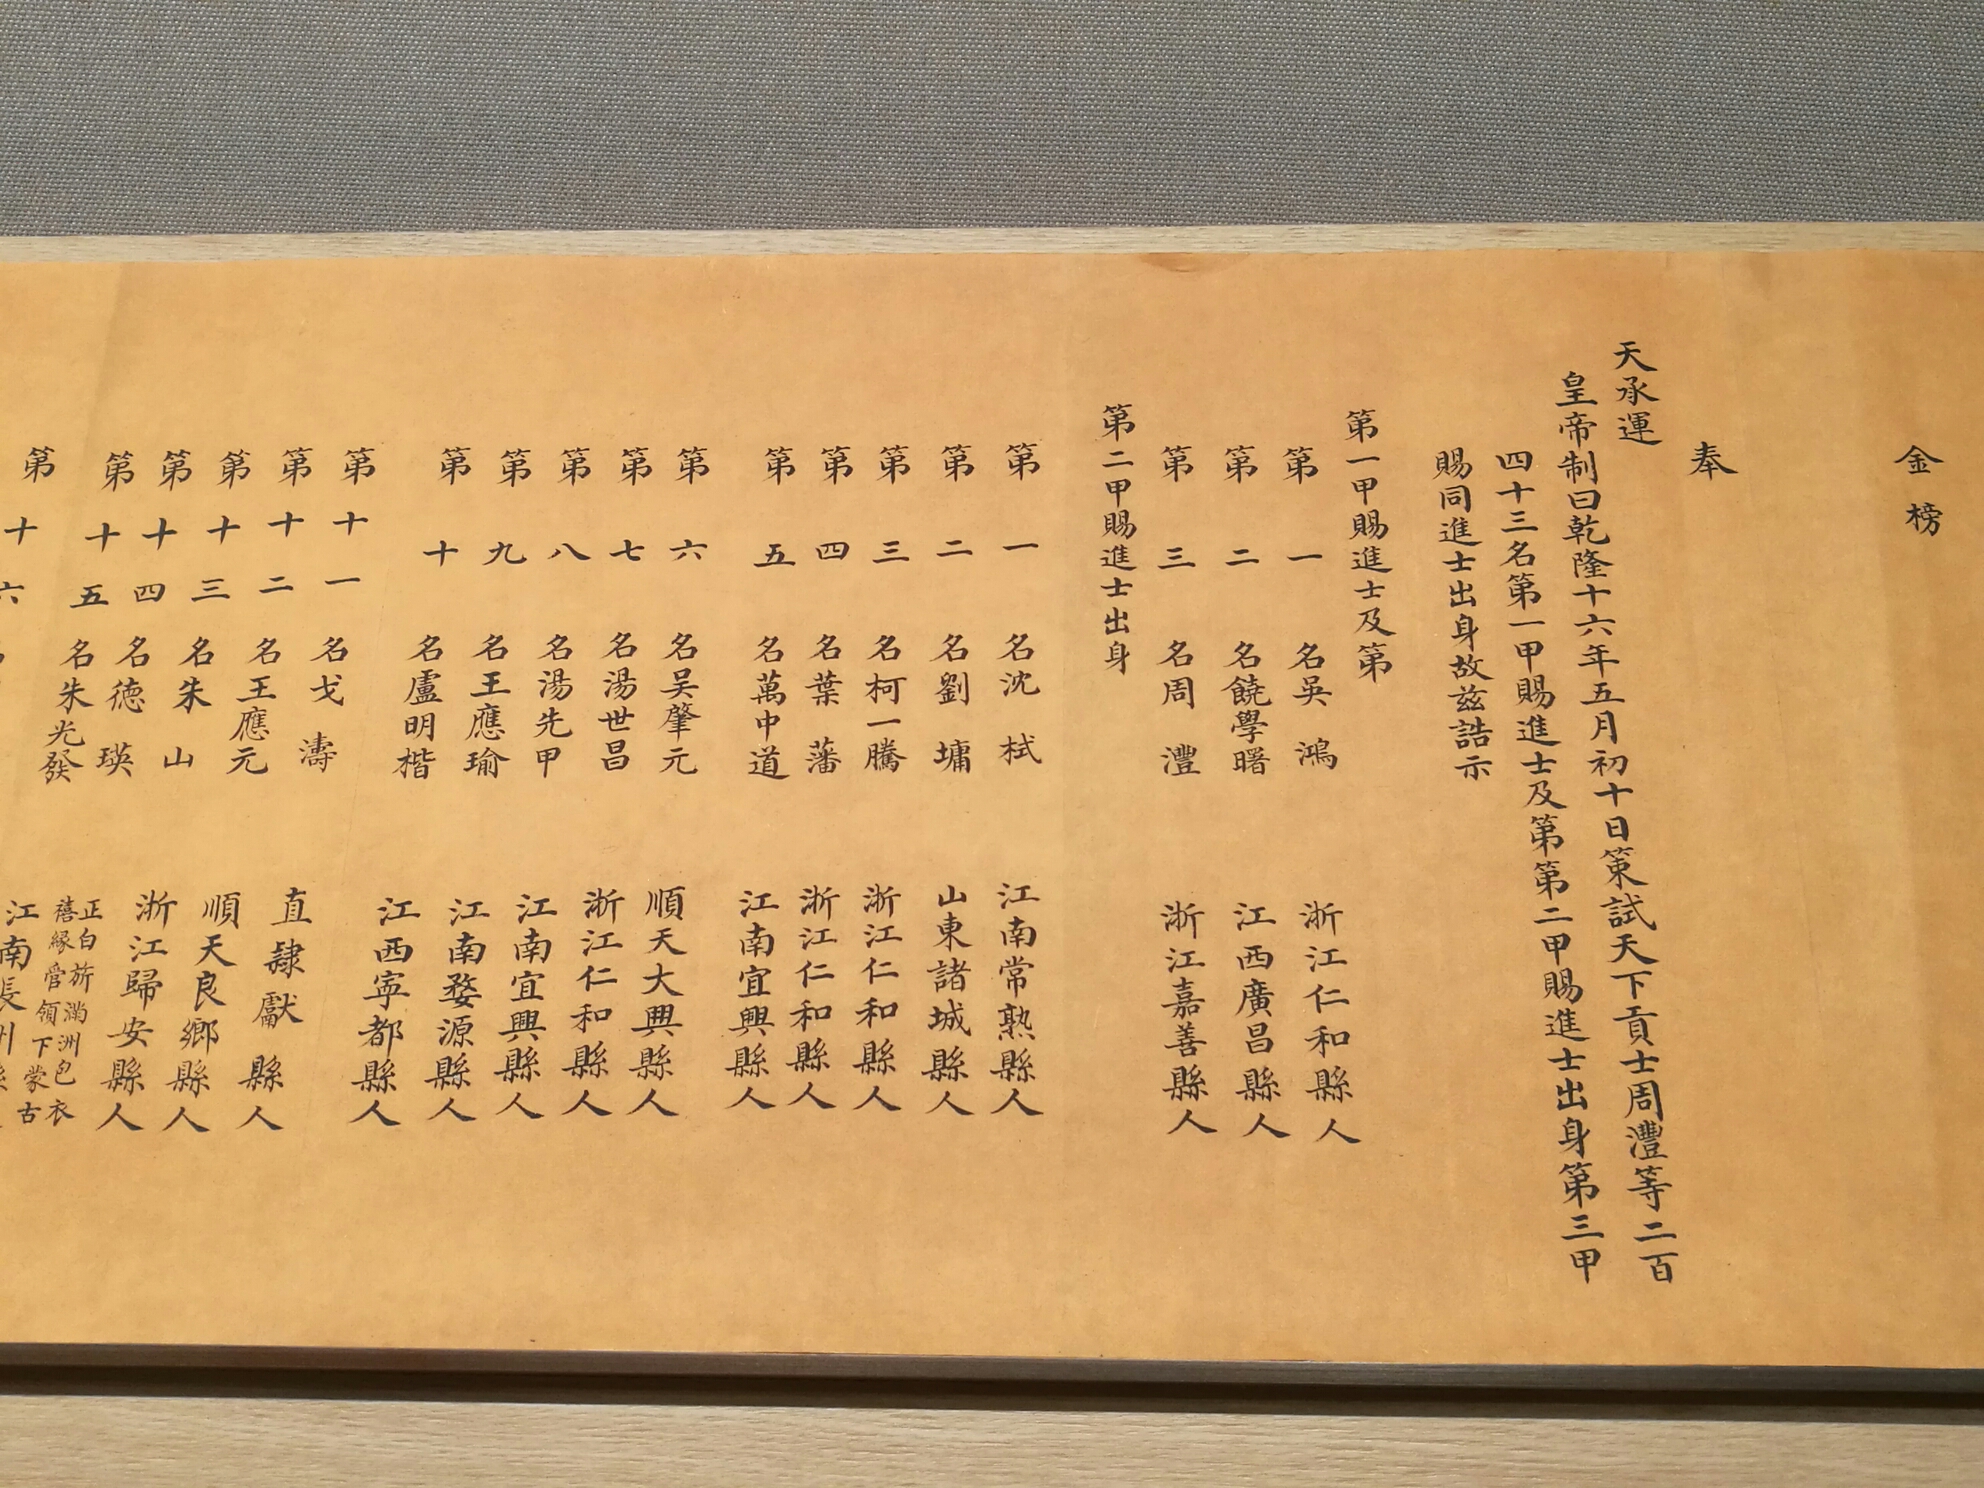 金榜
奉
天承運
皇帝制曰乾隆十六年五月初十日策試天下貢士周灃等二百
四十三名第一甲賜進士及第第二甲賜進士出身第三甲
賜同進士出身故兹誥示
第一甲賜進士及第
第一名吳鴻 浙江仁和縣人
第二名饒學曙 江西廣昌縣人
第三名周灃 浙江嘉善縣人
第二甲賜進士出身
第一名沈栻 江南常熟縣人
第二名劉墉 山東諸城縣人
第三名柯一騰 浙江仁和縣人
第四名葉藩 浙江仁和縣人
第五名萬中道 江南宜興縣人
第六名吴肇元 順天大興縣人
第七名湯世昌 浙江仁和縣人
第八名湯先甲 江南宜興縣人
第九名王應瑜 江南婺源縣人
第十名盧明楷 江西寕都縣人
第十一名戈濤 直隸獻縣人
第十二名王應元 順天良鄉縣人
第十三名朱山 浙江歸安縣人
第十四名德瑛 正白旂滿洲包衣
禧縁管領下蒙古
第十五名朱光發 江南長州
第十六